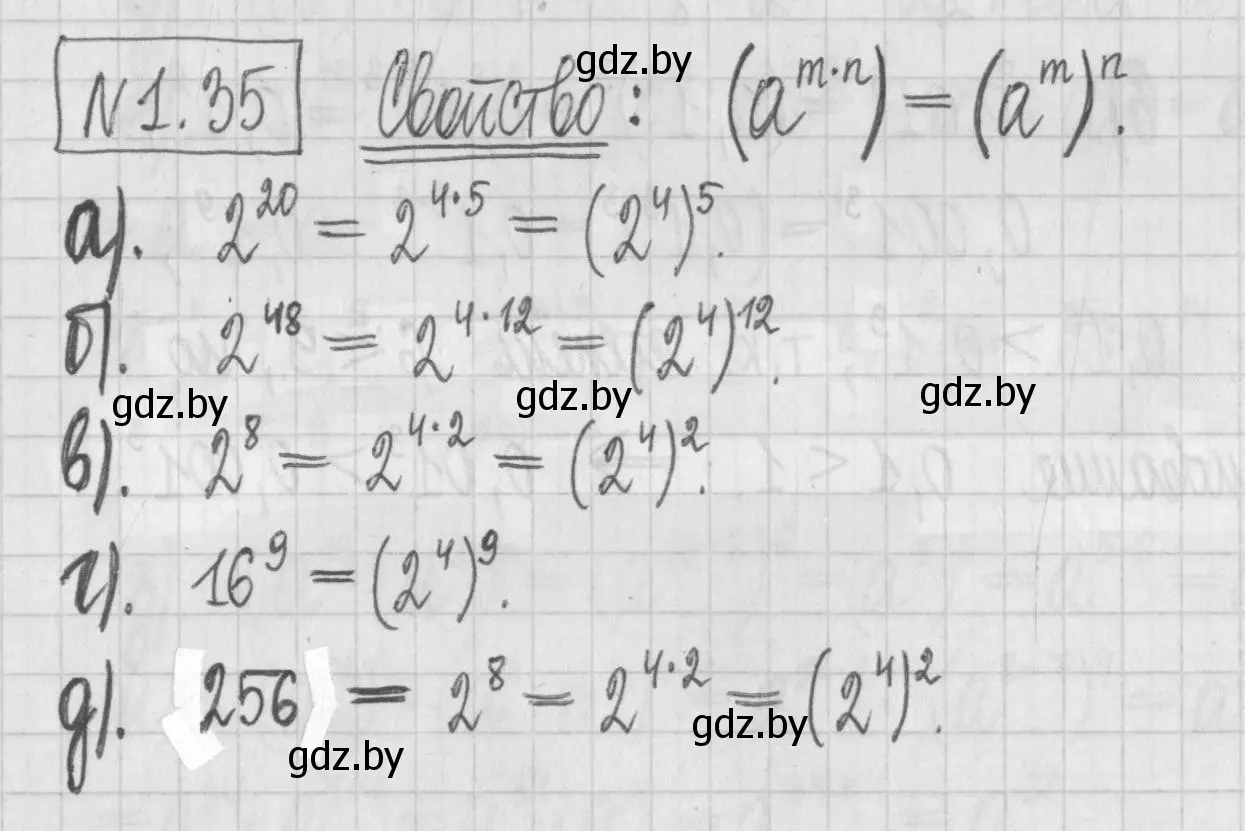 №1.35 Свойство: (a^{m·n}) = (a^m)^n.
а). 2^{20} = 2^{4·5} = (2^4)^5.
б). 2^{48} = 2^{4·12} = (2^4)^{12}.
в). 2^8 = 2^{4·2} = (2^4)^2.
г). 16^9 = (2^4)^9.
д). 256 = 2^8 = 2^{4·2} = (2^4)^2.
gdz.by
gdz.by
gdz.by
gdz.by
gdz.by
gdz.by